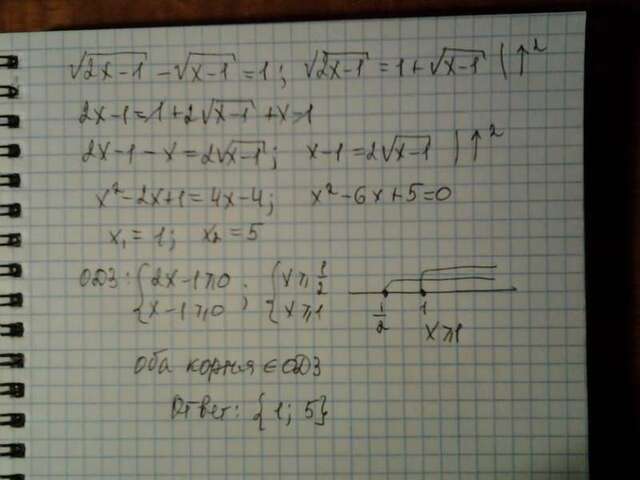 √2x-1 - √x-1 = 1; √2x-1 = 1 + √x-1 | ↑²
2x-1 = 1 + 2√x-1 + x - 1
2x-1-x = 2√x-1; x-1 = 2√x-1 | ↑²
x²-2x+1 = 4x-4; x²-6x+5=0
x₁ = 1; x₂ = 5
ОДЗ: { 2x-1≥0 ; { x≥ 1/2
{ x-1≥0 { x≥1
1/2 1
x≥1
оба корня ∈ ОДЗ
Ответ: {1; 5}